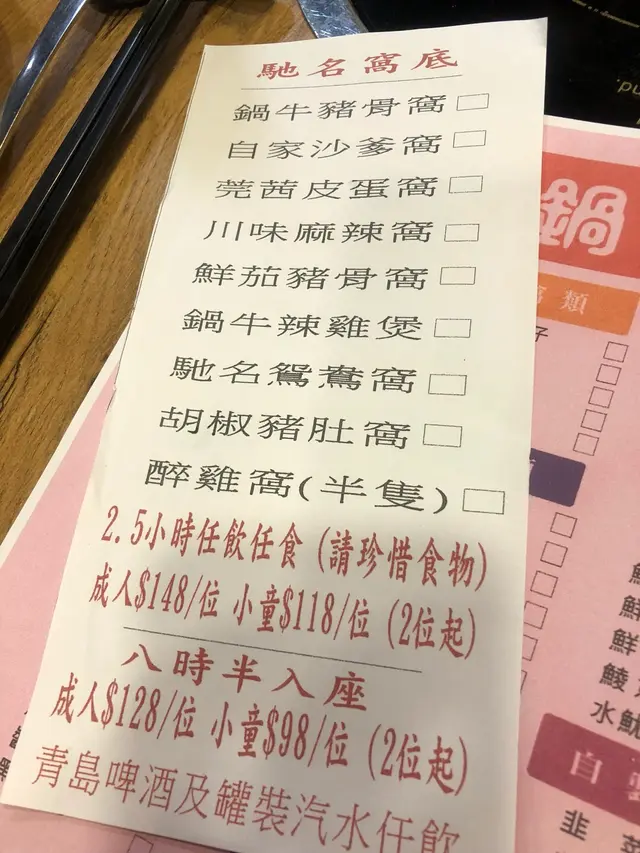 馳名窩底
鍋牛豬骨窩
自家沙爹窩
莞茜皮蛋窩
川味麻辣窩
鮮茄豬骨窩
鍋牛辣雞煲
馳名鴛鴦窩
胡椒豬肚窩
醉雞窩(半隻)
2.5小時任飲任食(請珍惜食物)
成人$148/位 小童$118/位 (2位起)
八時半入座
成人$128/位 小童$98/位 (2位起)
青島啤酒及罐裝汽水任飲
鍋
類
子
鮮
鮮
鯪
水魷
自
韭菜